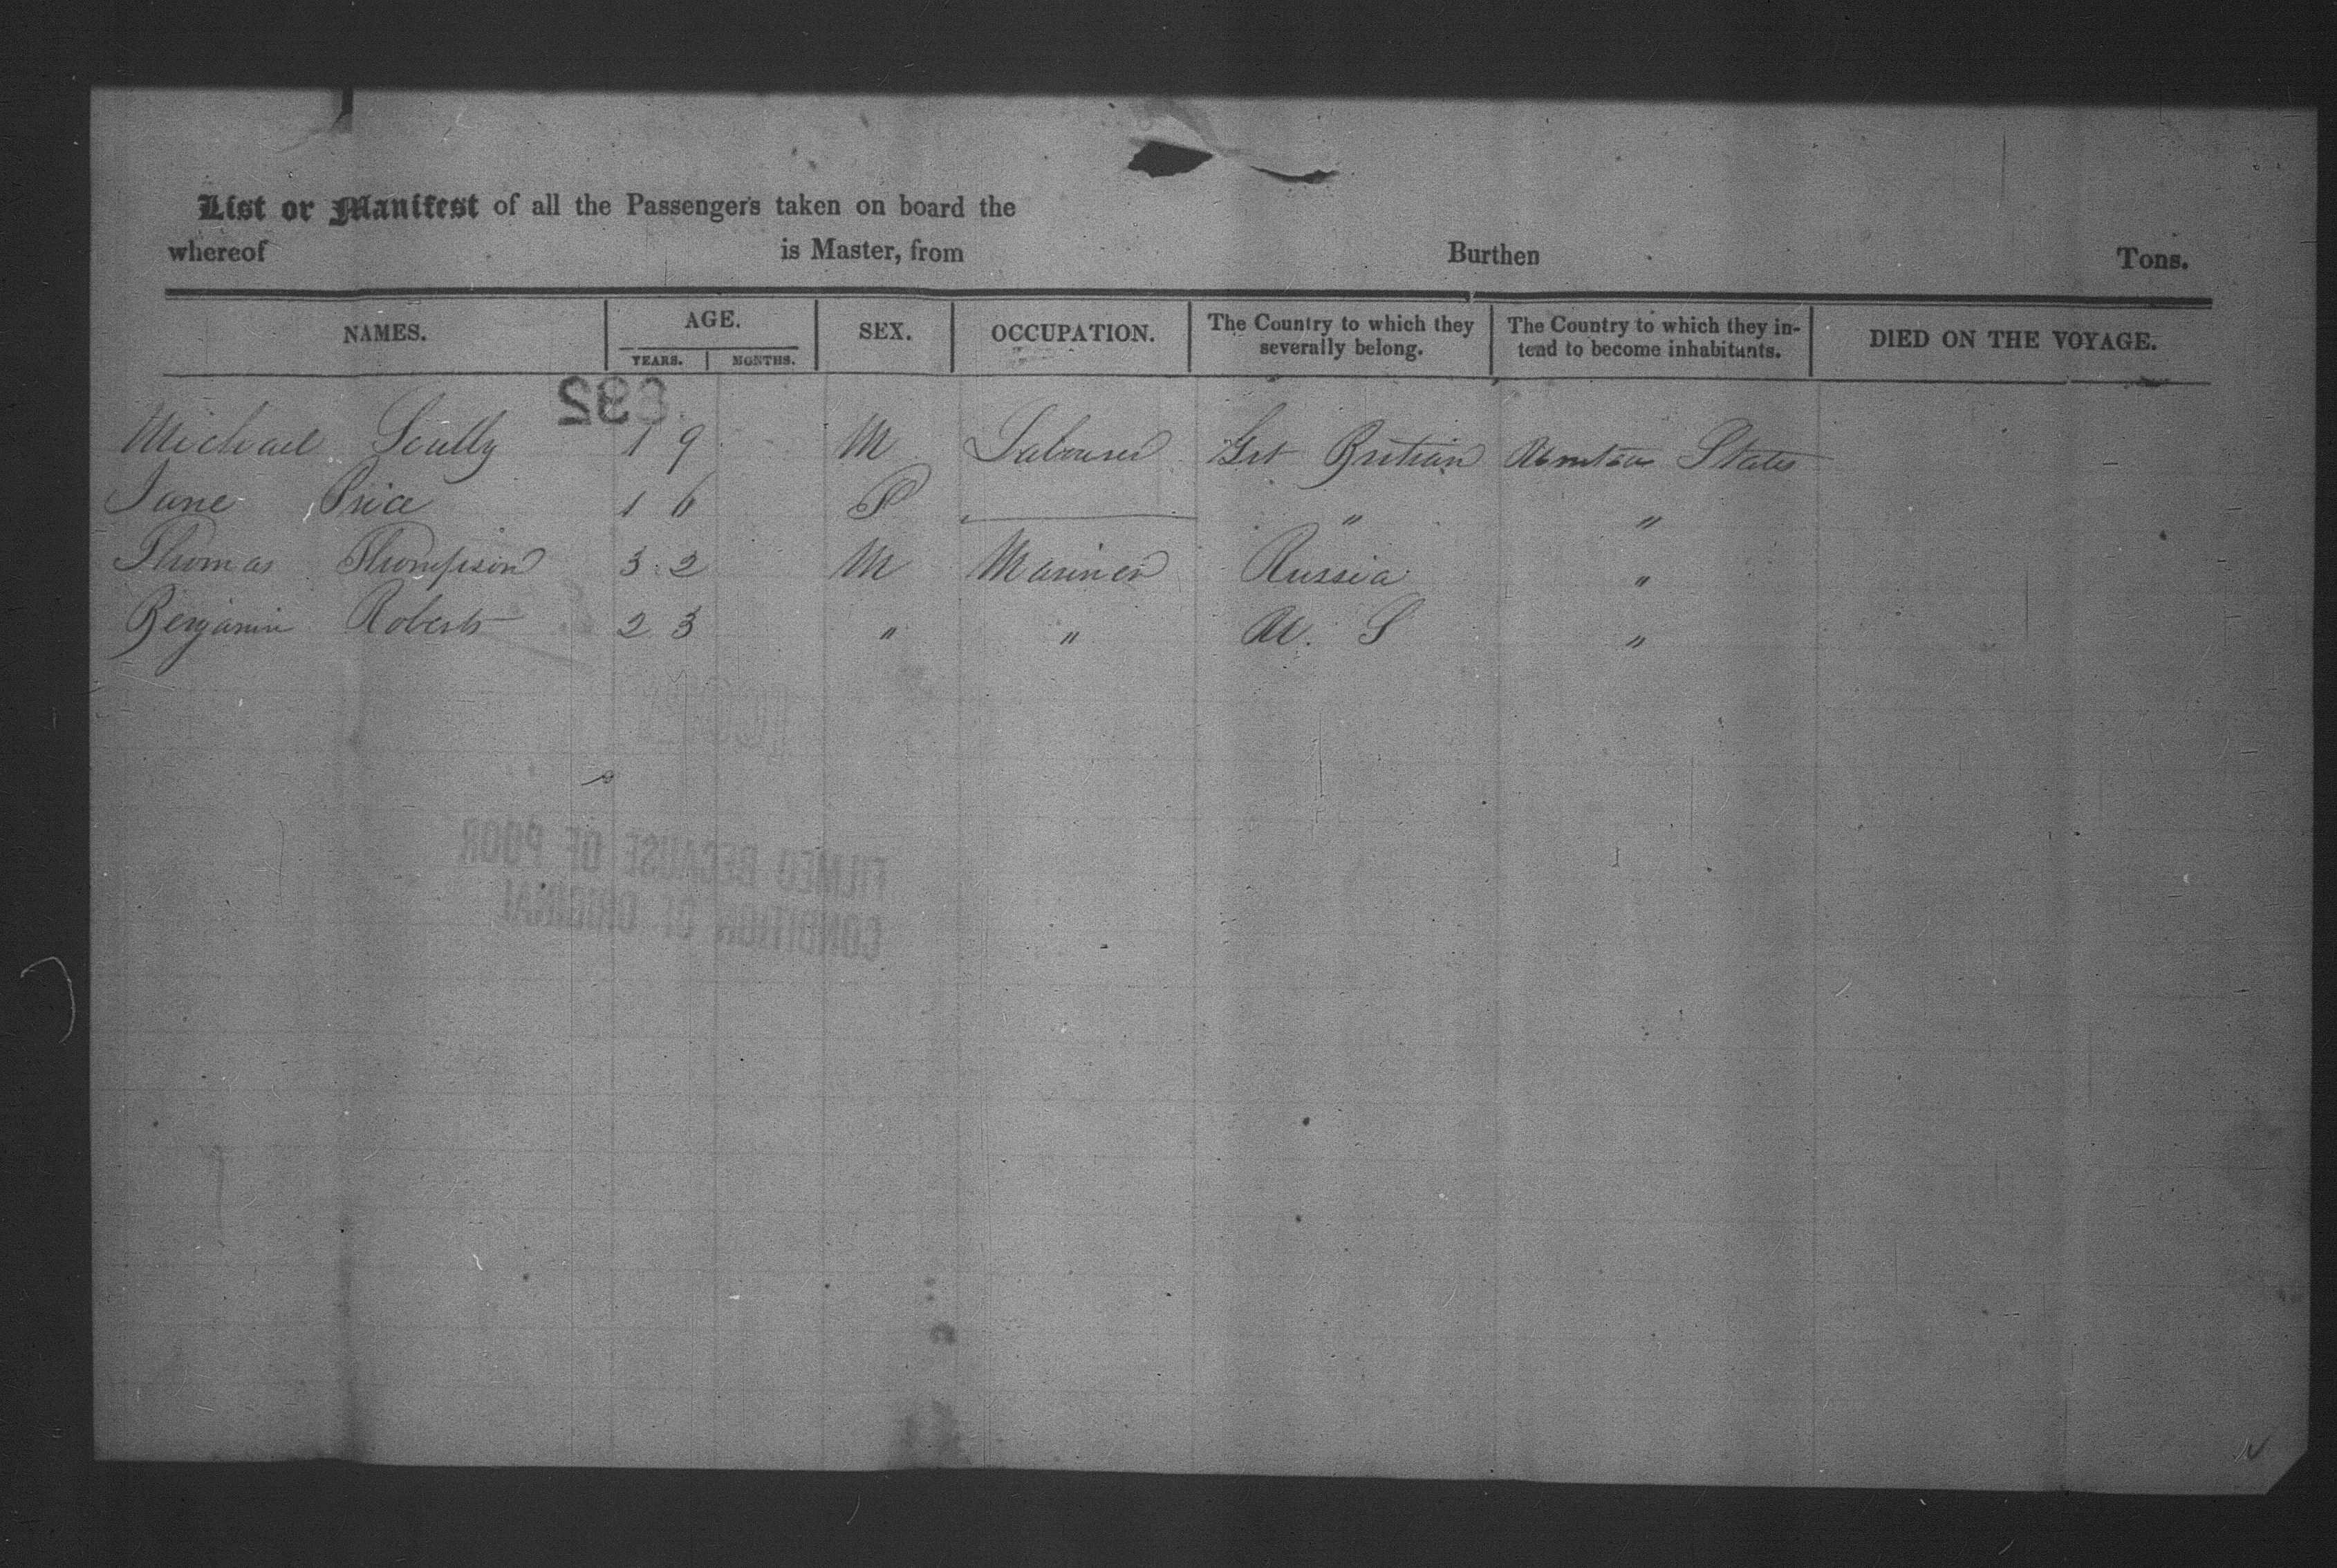 List or Manifest of all the Passengers taken on board the
whereof is Master, from Burthen Tons.
NAMES. AGE. SEX. OCCUPATION. The Country to which they severally belong. The Country to which they intend to become inhabitants. DIED ON THE VOYAGE.
YEARS. MONTHS.
Michael Scully 19 M Labourer Grt Britian United States
Jane Price 16 " "
Thomas Thompson 32 M Mariner Russia "
Benjamin Roberts 23 " " U. S "
COPY
FILMED BECAUSE OF POOR
CONDITION OF ORIGINAL